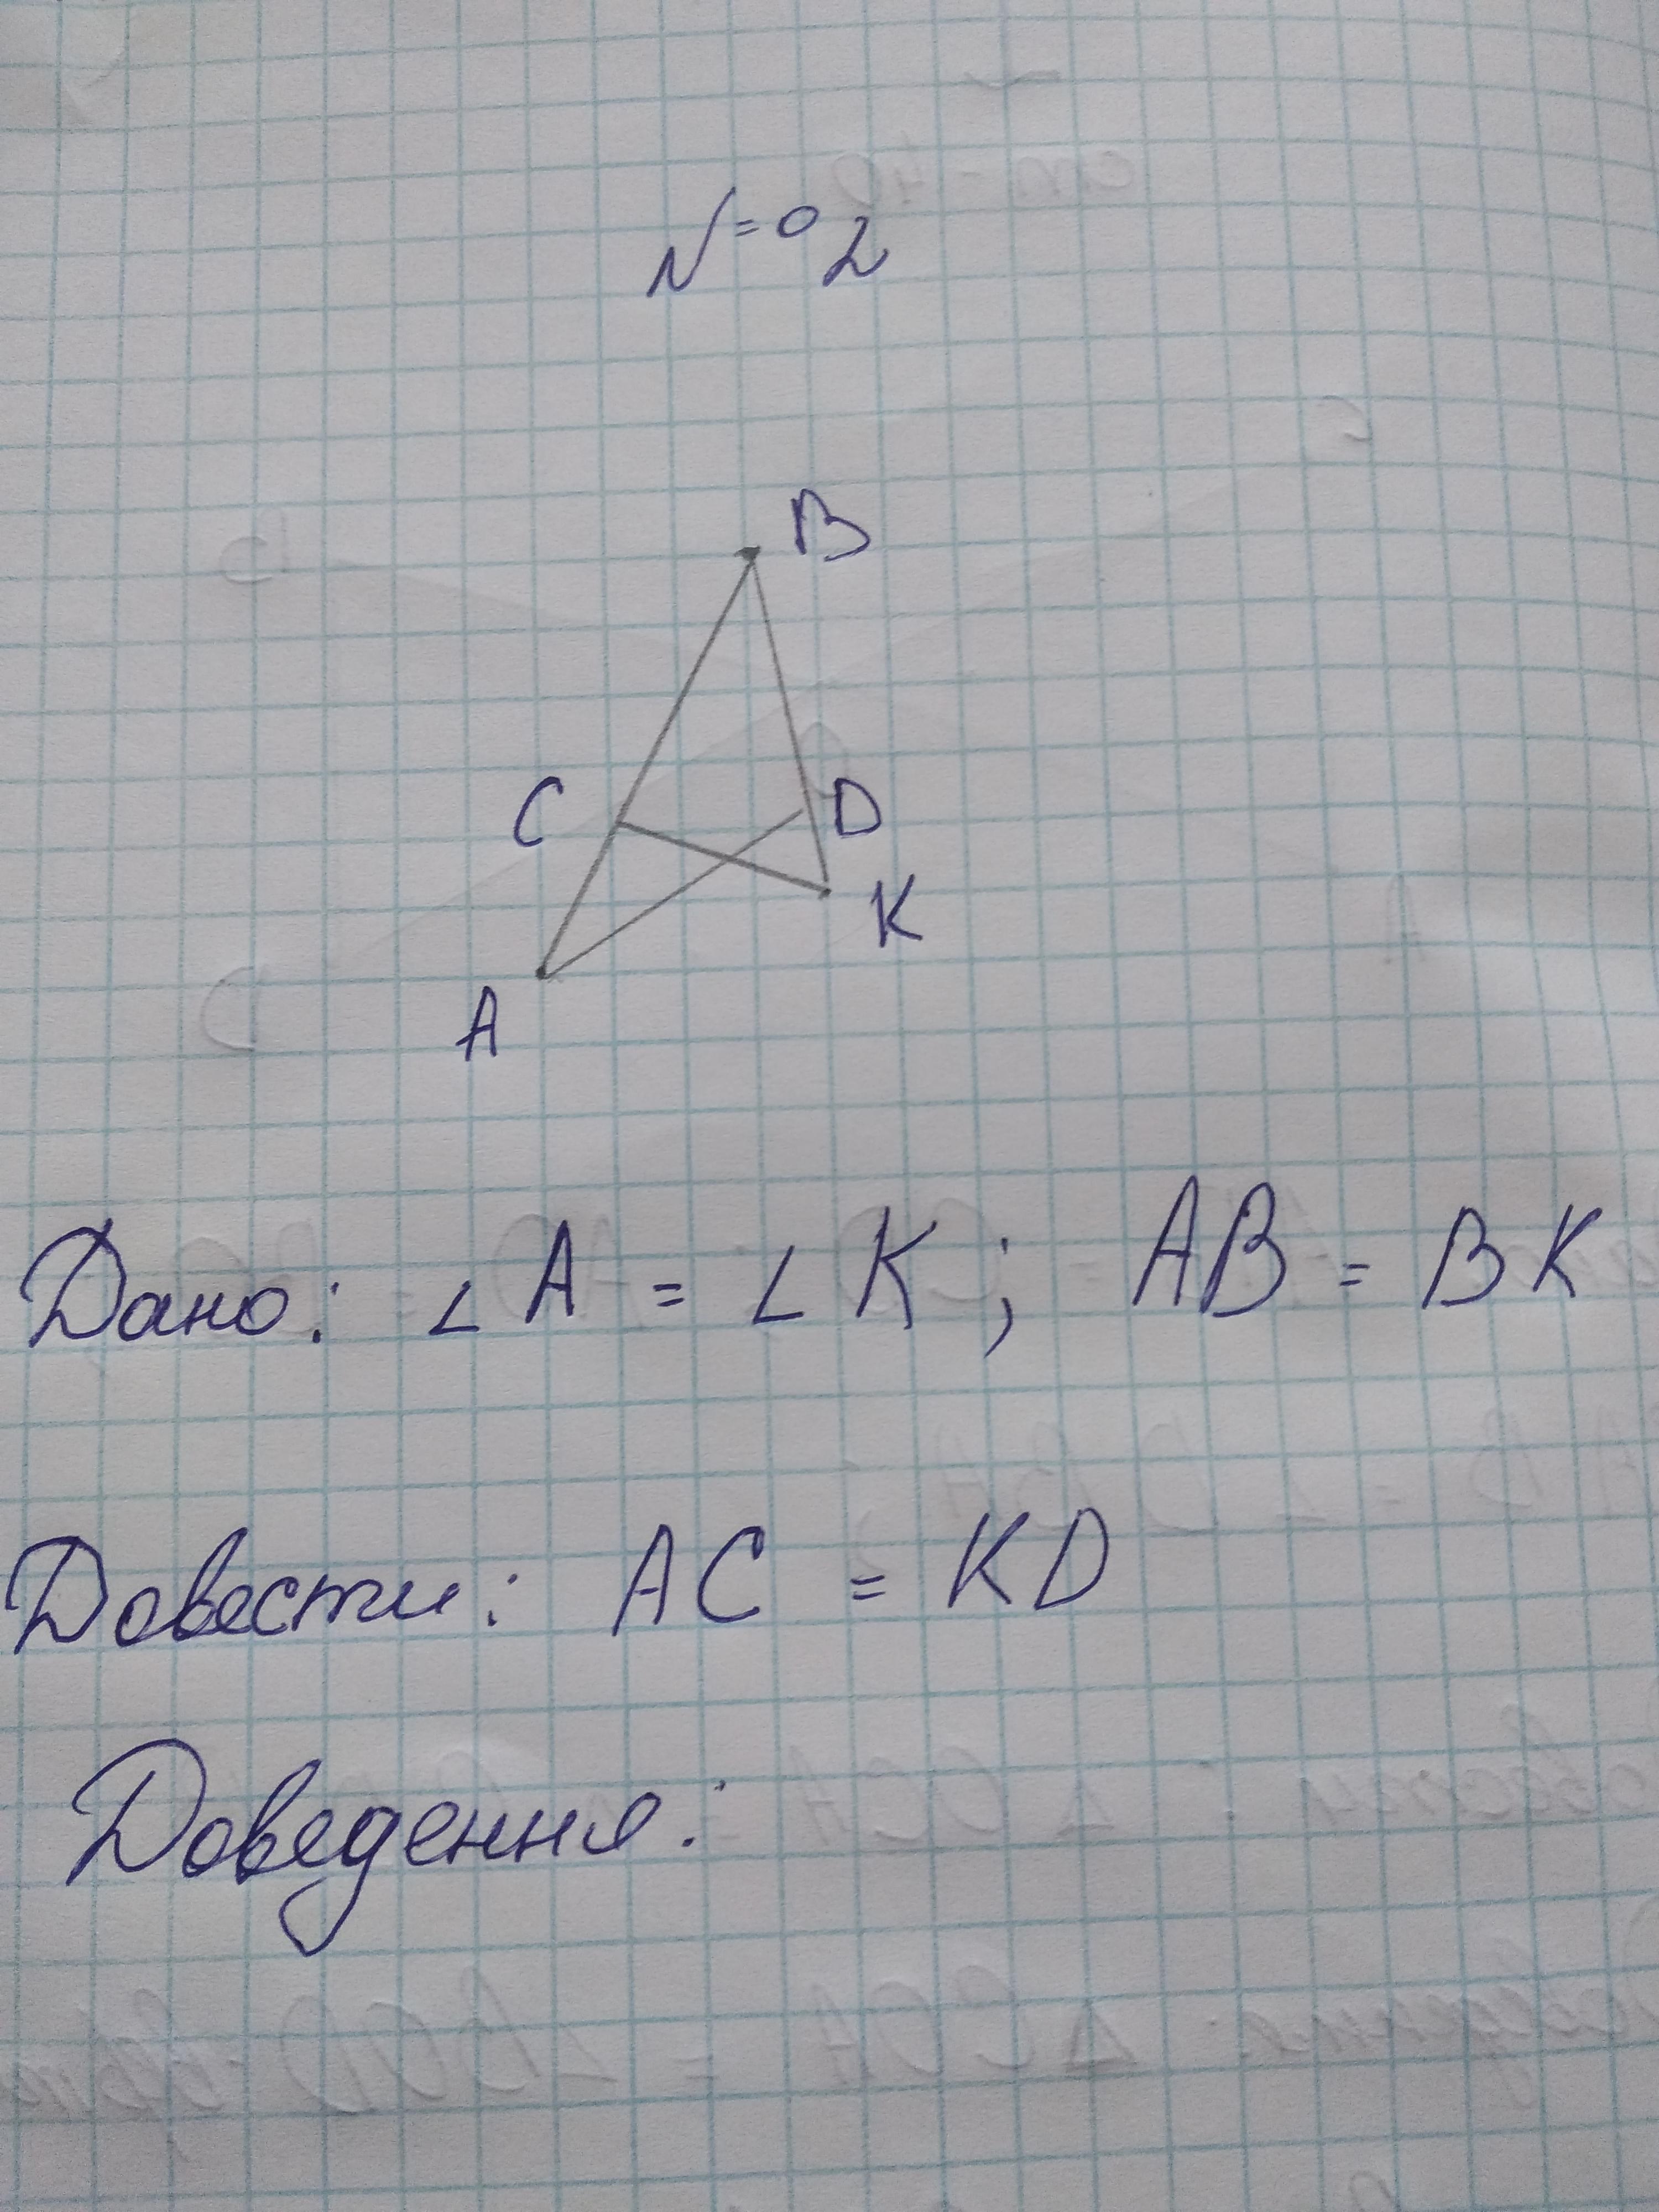 № 2
B
C D
K
A
Дано: ∠A = ∠K; AB = BK
Довести: AC = KD
Доведення: